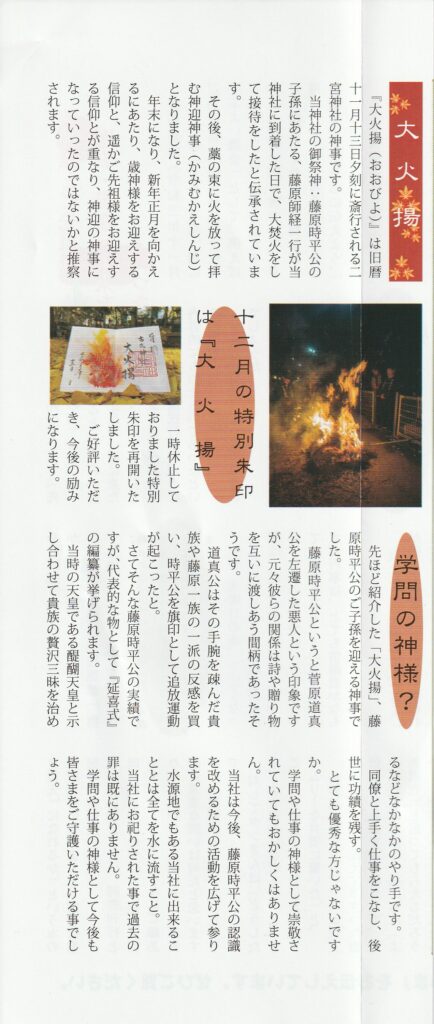 大火揚
『大火揚（おおびよ）』は旧暦
十一月十三日夕刻に斎行される二
宮神社の神事です。
当神社の御祭神：藤原時平公の
子孫にあたる、藤原師経一行が当
神社に到着した日で、大焚火をし
て接待をしたと伝承されていま
す。
その後、藁の束に火を放って拝
む神迎神事（かみむかえしんじ）
となりました。
年末になり、新年正月を向かえ
るにあたり、歳神様をお迎えする
信仰と、遥かご先祖様をお迎えす
る信仰とが重なり、神迎の神事に
なっていったのではないかと推察
されます。
十二月の特別朱印
は『大火揚』
大火揚
一時休止して
おりました特別
朱印を再開いた
しました。
ご好評いただ
き、今後の励み
になります。
学問の神様？
先ほど紹介した「大火揚」、藤
原時平公のご子孫を迎える神事で
した。
藤原時平公というと菅原道真
公を左遷した悪人という印象です
が、元々彼らの関係は詩や贈り物
を互いに渡しあう間柄であったそ
うです。
道真公はその手腕を疎んだ貴
族や藤原一族の一派の反感を買
い、時平公を旗印として追放運動
が起こったと。
さてそんな藤原時平公の実績で
すが、代表的な物として『延喜式』
の編纂が挙げられます。
当時の天皇である醍醐天皇と示
し合わせて貴族の贅沢三昧を治め
るなどなかなかのやり手です。
同僚と上手く仕事をこなし、後
世に功績を残す。
とても優秀な方じゃないです
か。
学問や仕事の神様として崇敬さ
れていてもおかしくはありませ
ん。
当社は今後、藤原時平公の認識
を改めるための活動を広げて参り
ます。
水源地でもある当社に出来るこ
とは全てを水に流すこと。
当社にお祀りされた事で過去の
罪は既にありません。
学問や仕事の神様として今後も
皆さまをご守護いただける事でし
ょう。